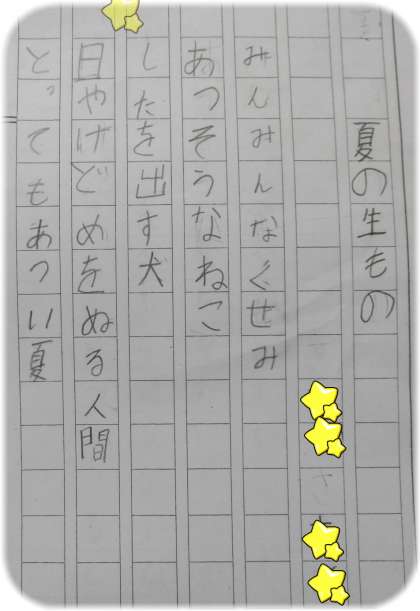 夏の生もの
みんみんなくせみ
あつそうなねこ
したを出す犬
日やけどめをぬる人間
とってもあつい夏